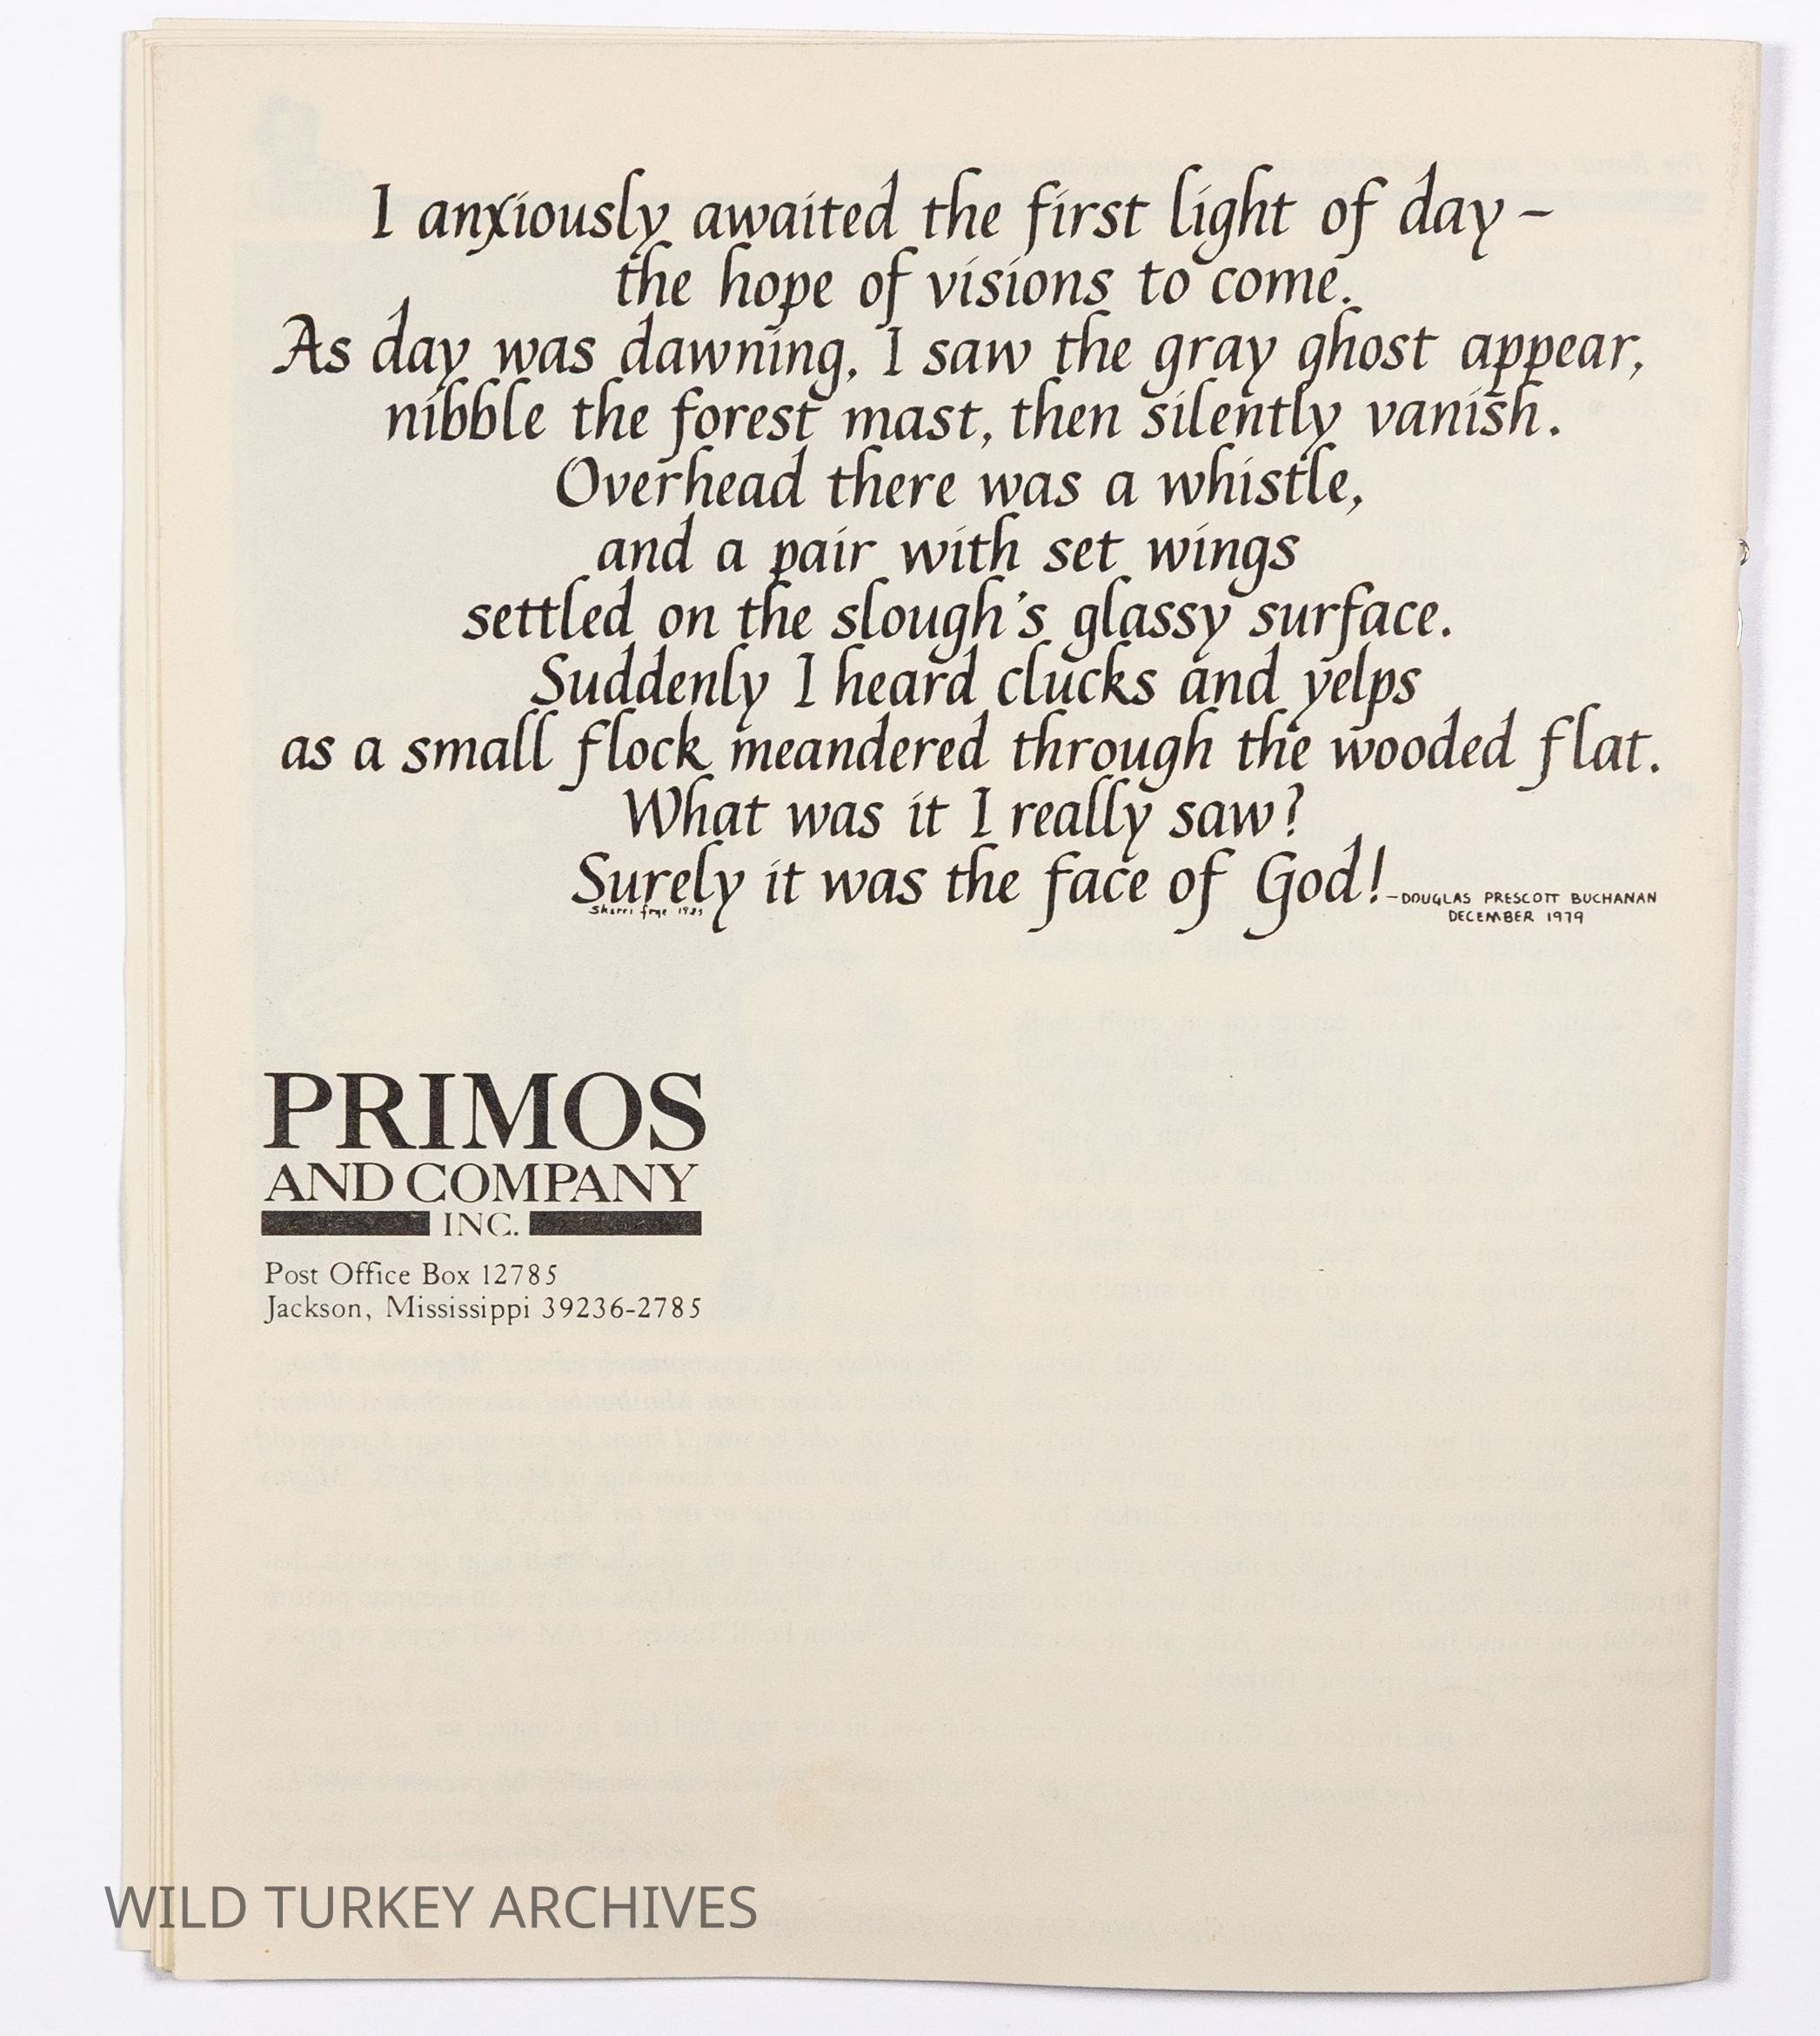 I anxiously awaited the first light of day –
the hope of visions to come.
As day was dawning, I saw the gray ghost appear,
nibble the forest mast, then silently vanish.
Overhead there was a whistle,
and a pair with set wings
settled on the slough's glassy surface.
Suddenly I heard clucks and yelps
as a small flock meandered through the wooded flat.
What was it I really saw?
Surely it was the face of God!
– DOUGLAS PRESCOTT BUCHANAN
DECEMBER 1979
PRIMOS
AND COMPANY
INC.
Post Office Box 12785
Jackson, Mississippi 39236-2785
WILD TURKEY ARCHIVES